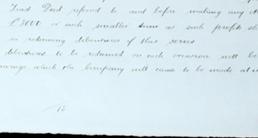 Trust Deed referred to and before making any
£3000 or such smaller sum as such profits
in redeeming debentures of this series
debentures to be redeemed on each occasion will be
which the Company will cause to be made at